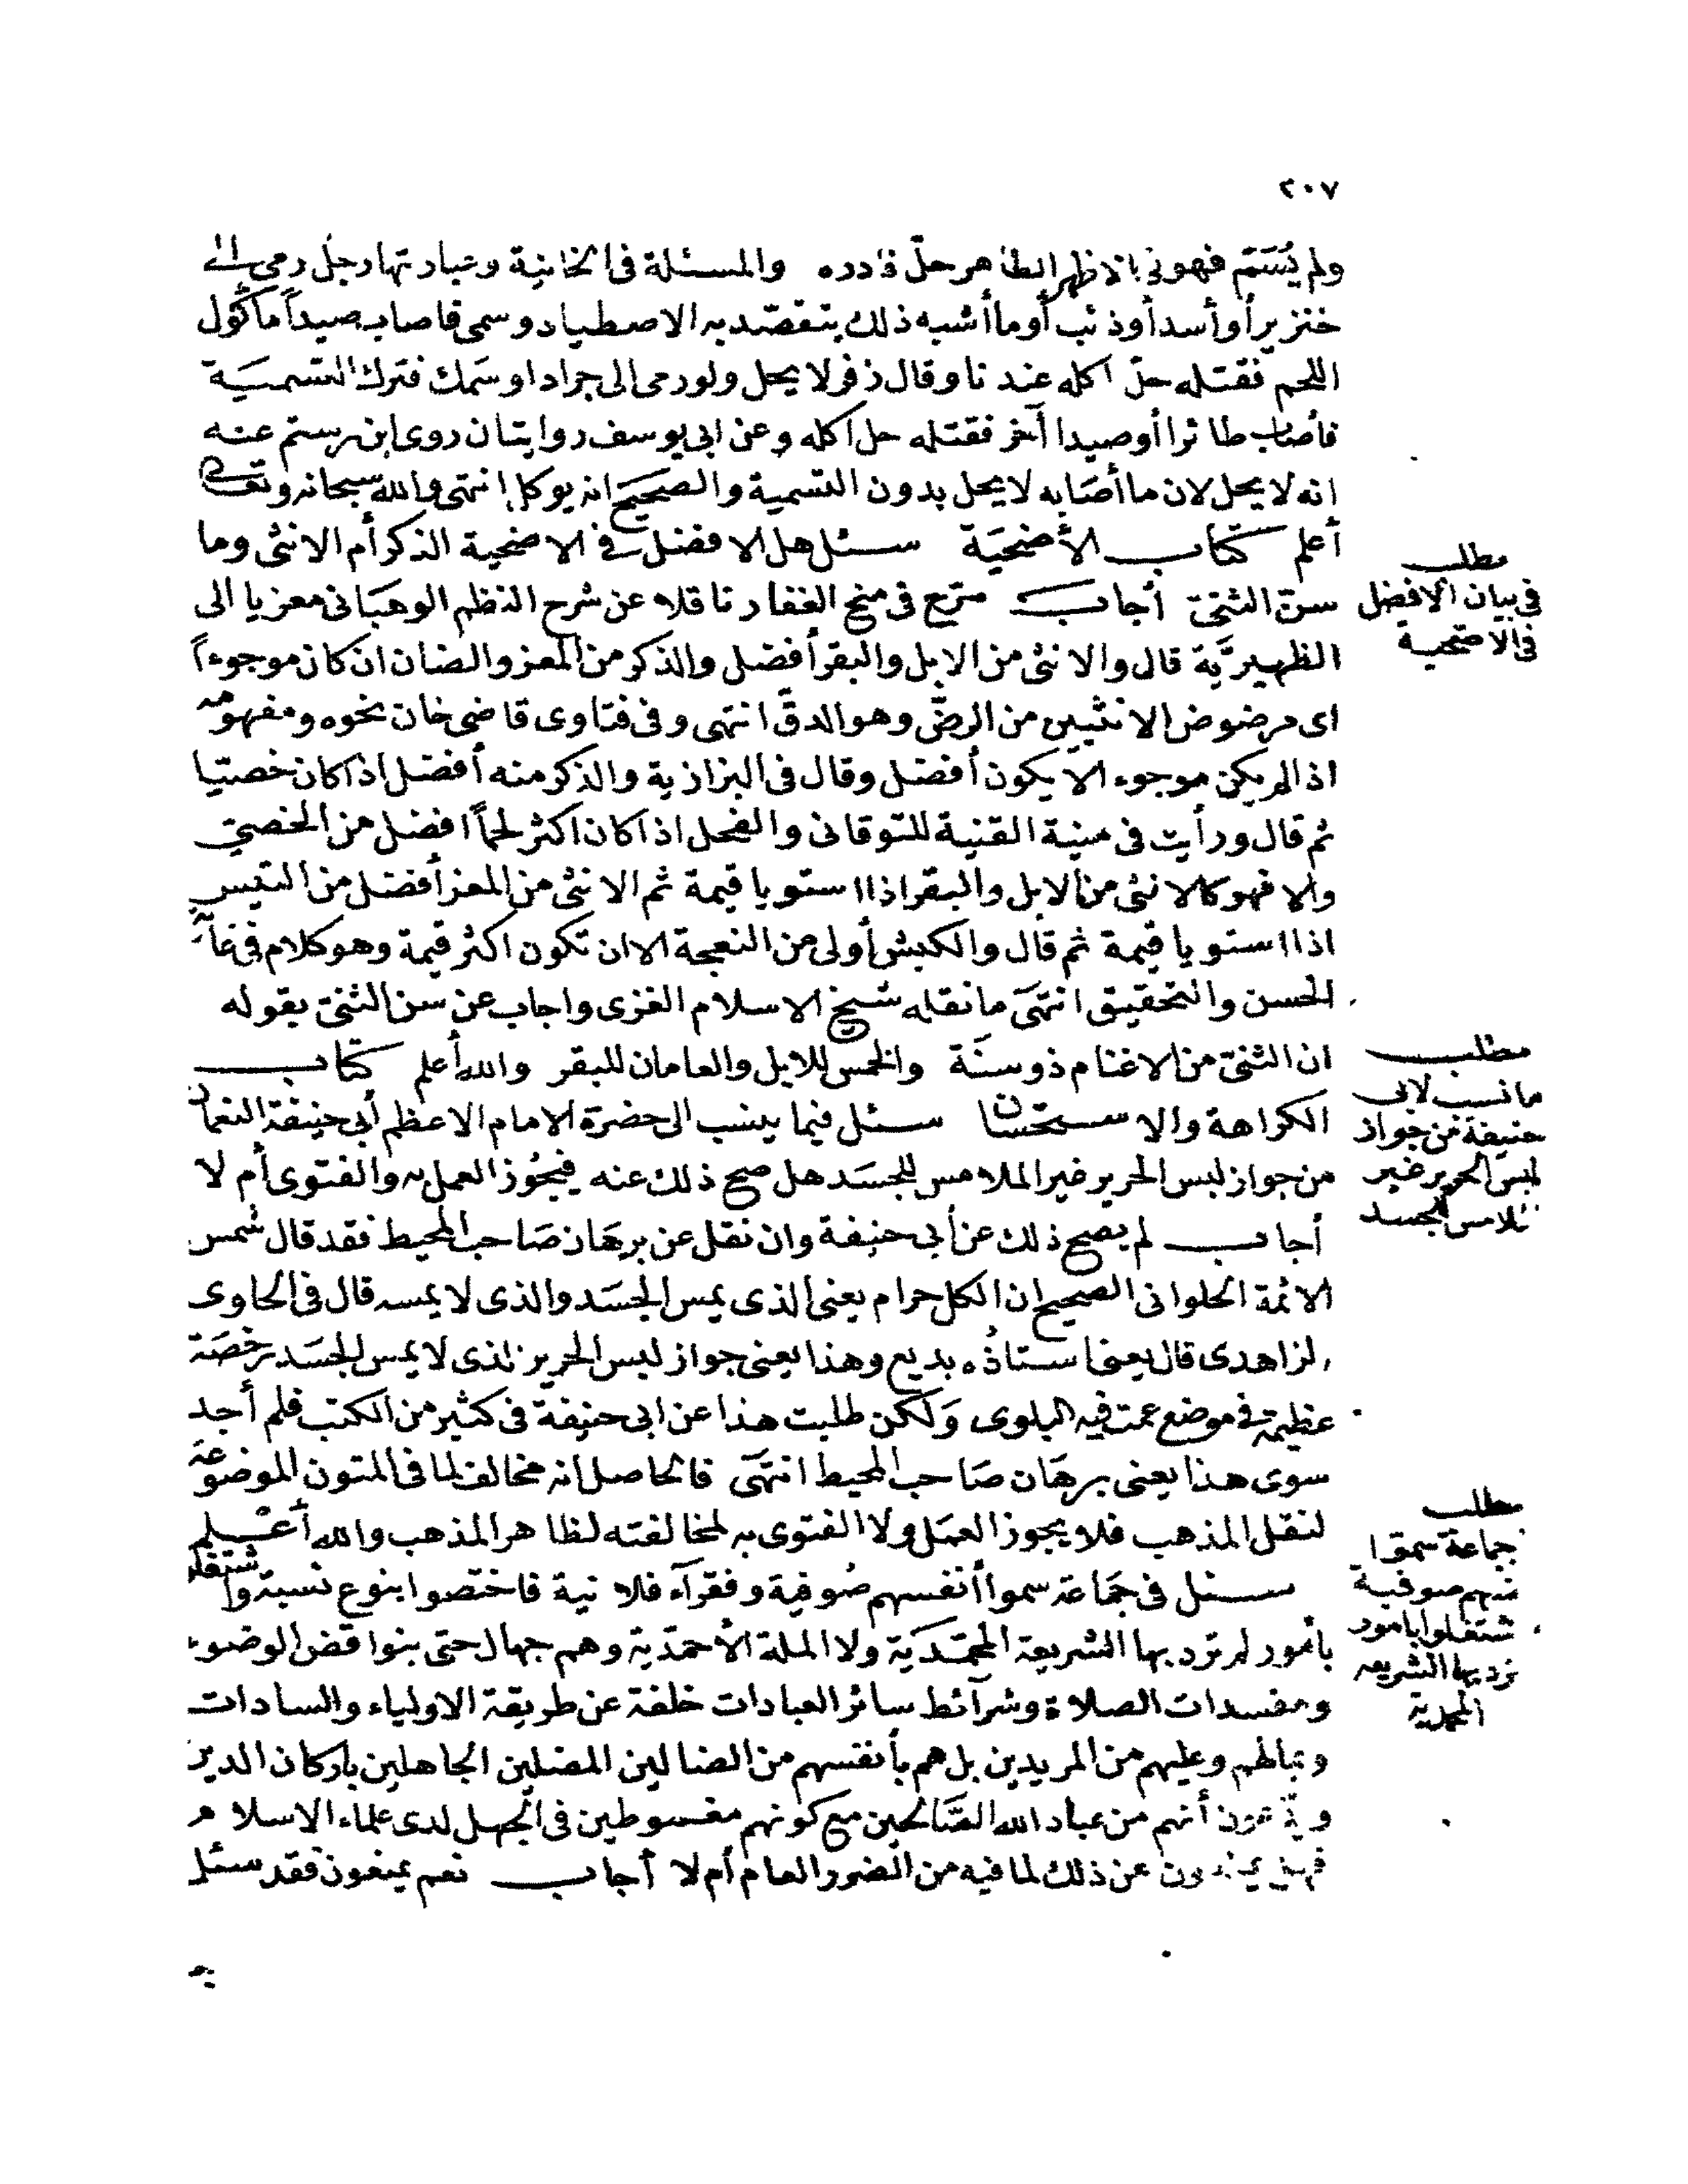 ٢٠٧
ولم يُسَمّ فهو في الاظهر الظاهر حلّ فادره والمسئلة في الخانية وعبارتها رجل رمى الى
خنزير أو أسد أو ذئب أو ما أشبه ذلك يتقصّد به الاصطياد وسمى فاصاب صيداً مأكول
اللحم فقتله حلّ اكله عندنا وقال زفر لا يحل ولو رمى الى جراد او سَمك فترك التسميَة
فأصاب طائرا أو صيدا آخر فقتله حل اكله وعن ابى يوسف روايتان روى ابن رستم عنه
انه لا يحل لان ما أصَابه لا يحل بدون التسمية والصحيح انه يوكل انتهى والله سبحانه وتعالى
أعلم كتاب الأضحيَة سئل هل الافضل في الاضحية الذكر أم الانثى وما
سنّ الثنيّ أجاب صرّح فى منح الغفار ناقلا عن شرح النظم الوهبَانى معزيا الى
الظهيريَّة قال والانثى من الابل والبقر أفضل والذكر من المعز والضان ان كان موجوءاً
اى مرضوض الانثيين من الرضّ وهو الدقّ انتهى وفى فتاوى قاضى خان نحوه ومفهومه
اذا لم يكن موجوء الا يكون أفضل وقال فى البزازية والذكر منه أفضل اذا كان خصيّا
ثم قال ورأيت فى منية القنية للتوقانى والفحل اذا كان اكثر لحماً افضل من الخصيّ
والا فهو كالانثى من الابل والبقر اذا استويا قيمة ثم الانثى من المعز أفضل من التيس
اذا استويا قيمة ثم قال والكبش أولى من النعجة الا ان تكون اكثر قيمة وهو كلام في غاية
الحسن والتحقيق انتهَى ما نقله شيخ الاسلام الغزى واجاب عن سن الثنيّ بقوله
ان الثنيّ من الاغنام ذو سنَة والخمس للابل والعامان للبقر والله أعلم كتاب
الكراهة والاستحسان سئل فيما ينسب الى حضرة الامام الاعظم أبى حنيفة النعمان
من جواز لبس الحرير غير الملامس للجسَد هل صح ذلك عنه فيجُوز العمل به والفتوى أم لا
أجاب لم يصح ذلك عن أبى حنيفة وان نقل عن برهَان صَاحب المحيط فقد قال شمس
الائمة الحلوانى الصحيح ان الكل حرام يعنى الذى يمس الجسَد والذى لا يمسه قال فى الحاوى
الزاهدى قال يعنى استاذُه بديع وهذا يعنى جواز لبس الحرير الذى لا يمس الجسَد رخصَة
عظيمة في موضع عمت فيه البلوى وَلكن طلبت هذا عن ابى حنيفة فى كثير من الكتب فلم أجد
سوى هذا يعنى برهَان صَاحب المحيط انتهَى فالحاصل انه مخالف لما فى المتون الموضوعَة
لنقل المذهب فلا يجوز العمَل ولا الفتوى به لمخالفته لظاهر المذهب والله أعلم
سئل فى جَمَاعة سموا أنفسهم صُوفية وفقرآء فلانية فاختصوا بنوع نسبة واشتغلوا
بأمور لم ترد بها الشريعة المحمّدَية ولا الملة الأحمدَية وهم جهال حتى بنواقض الوضوء
ومفسدات الصلاة وشرآئط سائر العبادات خلفة عن طريقة الاولياء والسادات
وبالهم وعليهم من المريدين بل هم بأنفسهم من الضالين المضلين الجاهلين باركان الدين
ويدّعون أنهم من عباد الله الصَّالحين مع كونهم مغسوطين فى الجهل لدى علماء الاسلام
فهل يمنعون عن ذلك لما فيه من الضرر العام أم لا أجاب نعم يمنعون فقد سئل
مطلب
في بيان الافضل
في الاضحية
مطلب
ما نسب لابى
حنيفة من جواز
لبس الحرير غير
ملامس الجسد
مطلب
جماعة سموا
صوفية
اشتغلوا بامور
ترد بها الشريعه
المحمدية